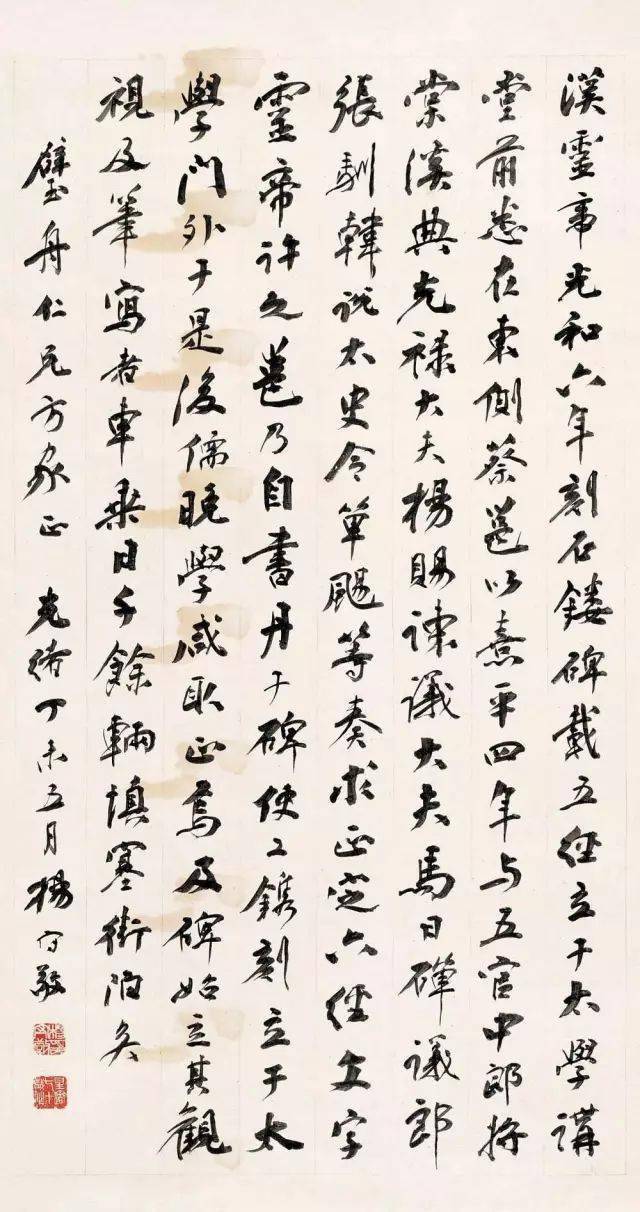 漢靈帝光和六年刻石鏤碑載五經立于太學講
堂前悉在東側蔡邕以熹平四年与五官中郎將
棠溪典光禄大夫楊賜諫議大夫馬日磾議郎
張馴韓説太史令單颺等奏求正定六經文字
靈帝許之邕乃自書丹于碑使工鐫刻立于太
學門外于是後儒晚學咸取正焉及碑始立其觀
視及筆寫者車乘日千餘輛填塞街陌矣
璧舟仁兄方家正 光緒丁未五月楊守敬